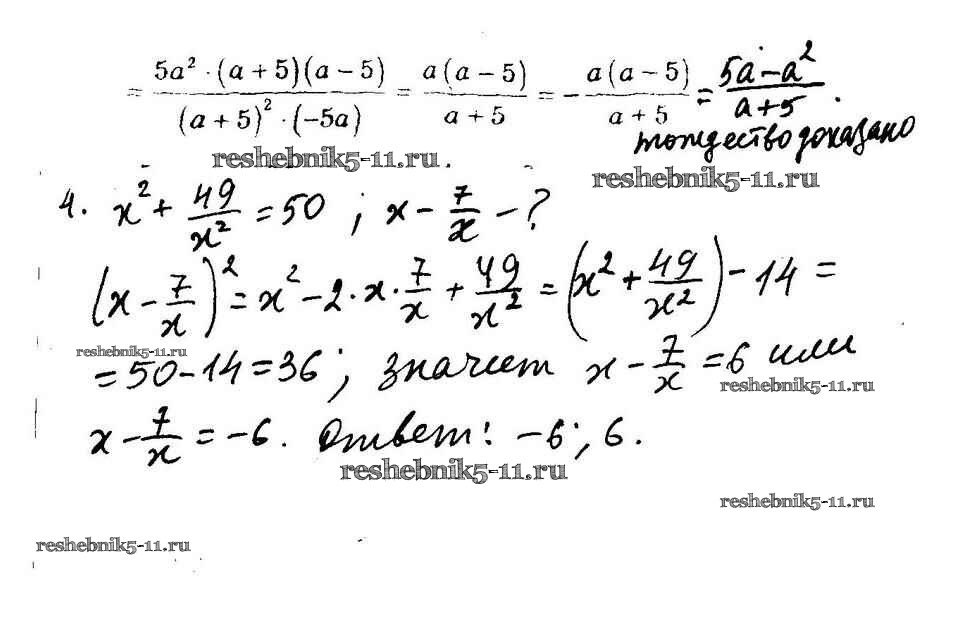 = 5a² · (a + 5)(a − 5) / (a + 5)² · (−5a) = a(a − 5) / a + 5 = − a(a − 5) / a + 5 = 5a − a² / a + 5 .
тождество доказано
reshebnik5-11.ru .
reshebnik5-11.ru
4. x² + 49/x² = 50 ; x − 7/x − ?
(x − 7/x)² = x² − 2 · x · 7/x + 49/x² = (x² + 49/x²) − 14 =
reshebnik5-11.ru
= 50 − 14 = 36 ; значит x − 7/x = 6 или
reshebnik5-11.ru
x − 7/x = −6. Ответ: −6; 6.
reshebnik5-11.ru
reshebnik5-11.ru
reshebnik5-11.ru